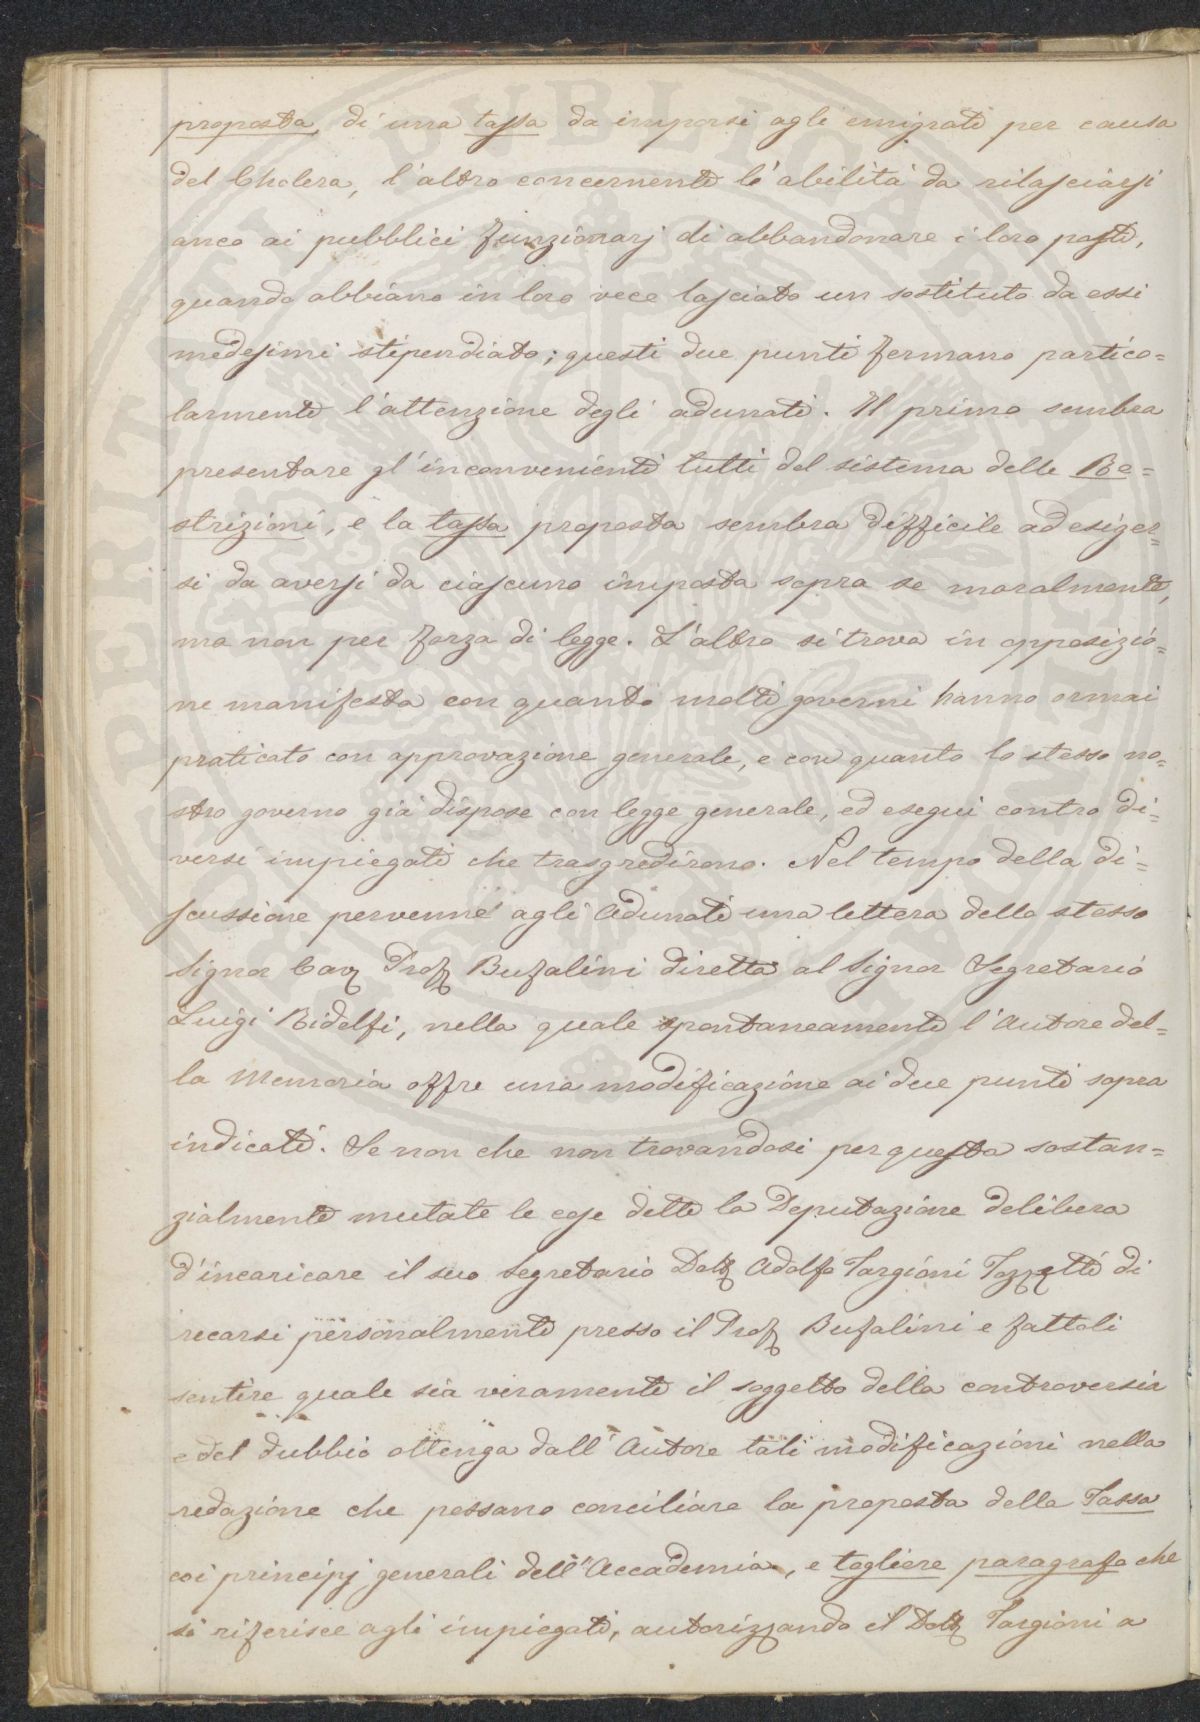 proposta di una tassa da imporsi agli emigrati per causa
del Cholera, l'altro concernente l'abilità da rilasciarsi
anco ai pubblici funzionarj di abbandonare i loro posti,
quando abbiano in loro vece lasciato un sostituto da essi
medesimi stipendiato; questi due punti fermano partico=
larmente l'attenzione degli adunati. Il primo sembra
presentare gl'inconvenienti tutti del sistema delle Re=
strizioni, e la tassa proposta sembra difficile ad esiger=
si da aversi da ciascuno imposta sopra se moralmente,
ma non per forza di legge. L'altro si trova in opposizio=
ne manifesta con quanto molti governi hanno ormai
praticato con approvazione generale, e con quanto lo stesso no=
stro governo già dispose con legge generale, ed eseguì contro di=
versi impiegati che trasgredirono. Nel tempo della di=
scussione pervenne agli Adunati una lettera dello stesso
Signor Cav Prof Bufalini diretta al Signor Segretario
Luigi Ridolfi, nella quale spontaneamente l'Autore del=
la Memoria offre una modificazione ai due punti sopra
indicati. Se non che non trovandosi per questa sostan=
zialmente mutate le cose dette la Deputazione delibera
d'incaricare il suo Segretario Dott Adolfo Targioni Tozzetti di
recarsi personalmente presso il Prof Bufalini e fattoli
sentire quale sia veramente il soggetto della controversia
e del dubbio ottenga dall'Autore tali modificazioni nella
redazione che possano conciliare la proposta della Tassa
coi principj generali dell'Accademia, e togliere paragrafo che
si riferisce agli impiegati, autorizzando il Dott Targioni a